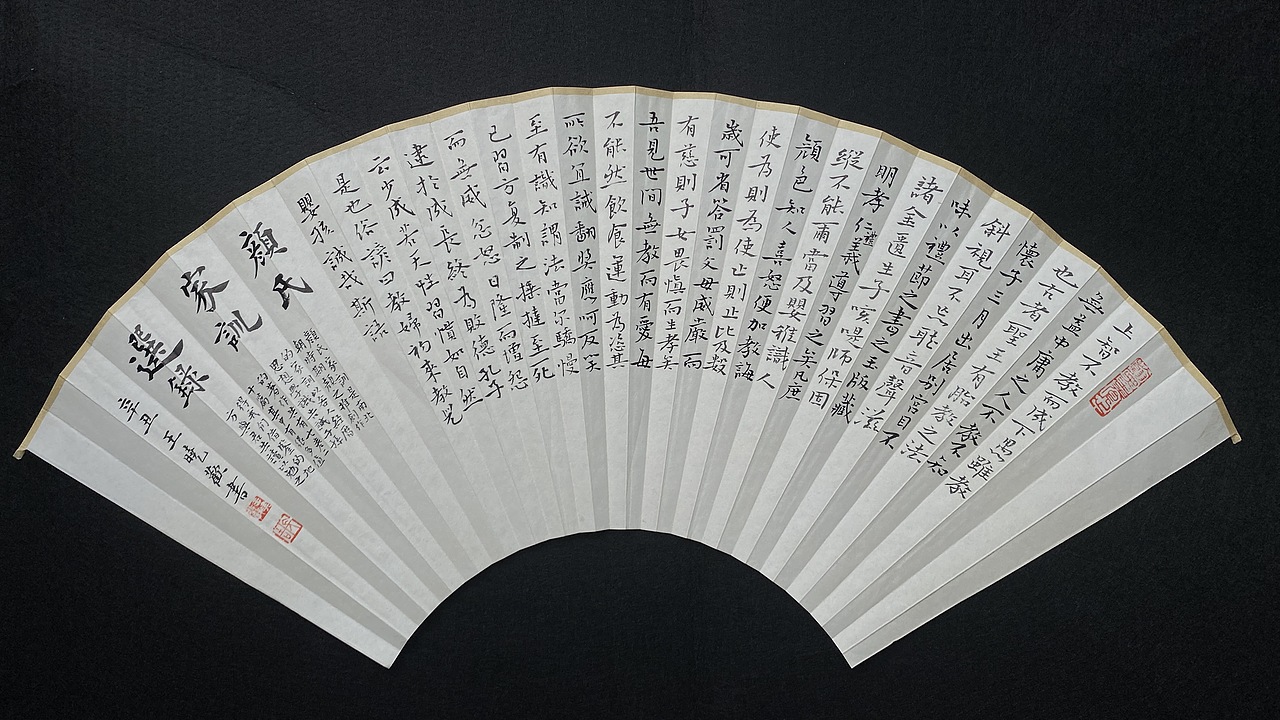 上智不教而成下愚雖教
無益中庸之人不教不知
也古者聖王有胎教之法
懷子三月出居別宮目不
斜視耳不妄聽音聲滋
味以禮節之書之玉版藏
諸金匱生子咳㖷師保固
明孝仁禮義導習之矣凡庶
縱不能爾當及嬰稚識人
顏色知人喜怒便加教誨
使為則為使止則止比及數
歲可省笞罰父母威嚴而
有慈則子女畏慎而生孝矣
吾見世間無教而有愛每
不能然飲食運動為恣其
所欲宜誡翻獎應呵反笑
至有識知謂法當尔驕慢
已習方復制之捶撻至死
而無威忿怒日隆而增怨
逮於成長終為敗德孔子
云少成若天性習慣如自然
是也俗諺曰教婦初來教兒
嬰孩誠哉斯語
顏氏
家訓
選錄
辛丑王曉歡書